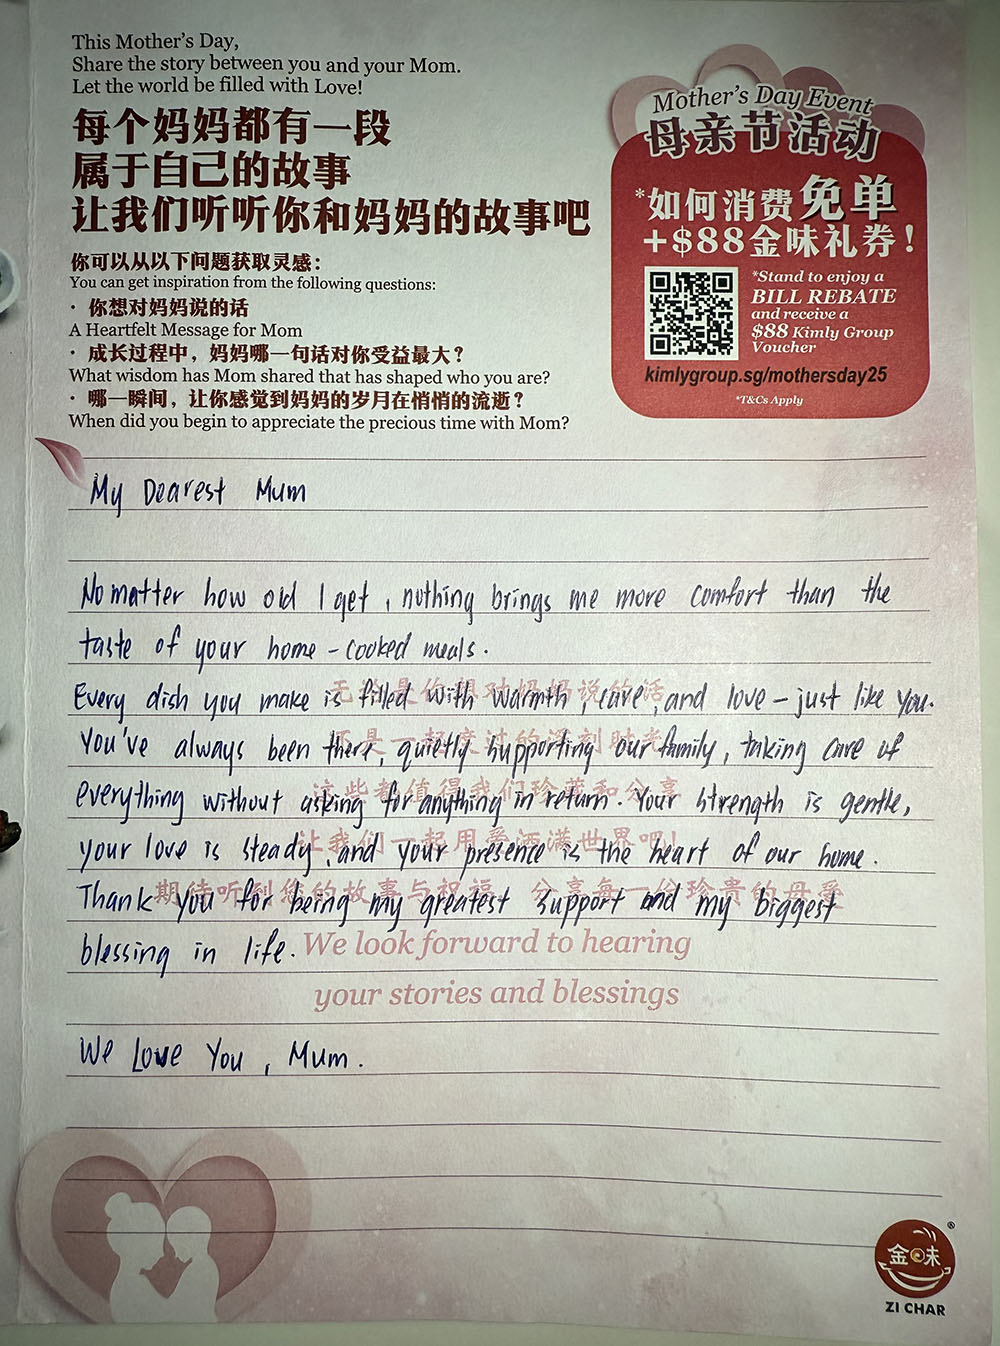 This Mother's Day,
Share the story between you and your Mom.
Let the world be filled with Love!
每个妈妈都有一段
属于自己的故事
让我们听听你和妈妈的故事吧
你可以从以下问题获取灵感：
You can get inspiration from the following questions:
· 你想对妈妈说的话
A Heartfelt Message for Mom
· 成长过程中，妈妈哪一句话对你受益最大？
What wisdom has Mom shared that has shaped who you are?
· 哪一瞬间，让你感觉到妈妈的岁月在悄悄的流逝？
When did you begin to appreciate the precious time with Mom?
Mother's Day Event
母亲节活动
*如何消费免单
+$88金味礼券！
*Stand to enjoy a
BILL REBATE
and receive a
$88 Kimly Group
Voucher
kimlygroup.sg/mothersday25
*T&Cs Apply
My Dearest Mum
No matter how old I get, nothing brings me more comfort than the
taste of your home-cooked meals.
无论是你想对妈妈说的话
Every dish you make is filled with warmth, care, and love - just like you.
还是一起度过的深刻时光
You've always been there, quietly supporting our family, taking care of
这些都值得我们珍藏和分享
everything without asking for anything in return. Your strength is gentle,
让我们一起用爱洒满世界吧！
your love is steady, and your presence is the heart of our home.
期待听到您的故事与祝福，分享每一份珍贵的母爱
Thank you for being my greatest support and my biggest
blessing in life.
We look forward to hearing
your stories and blessings
We Love You, Mum.
金味
®
ZI CHAR